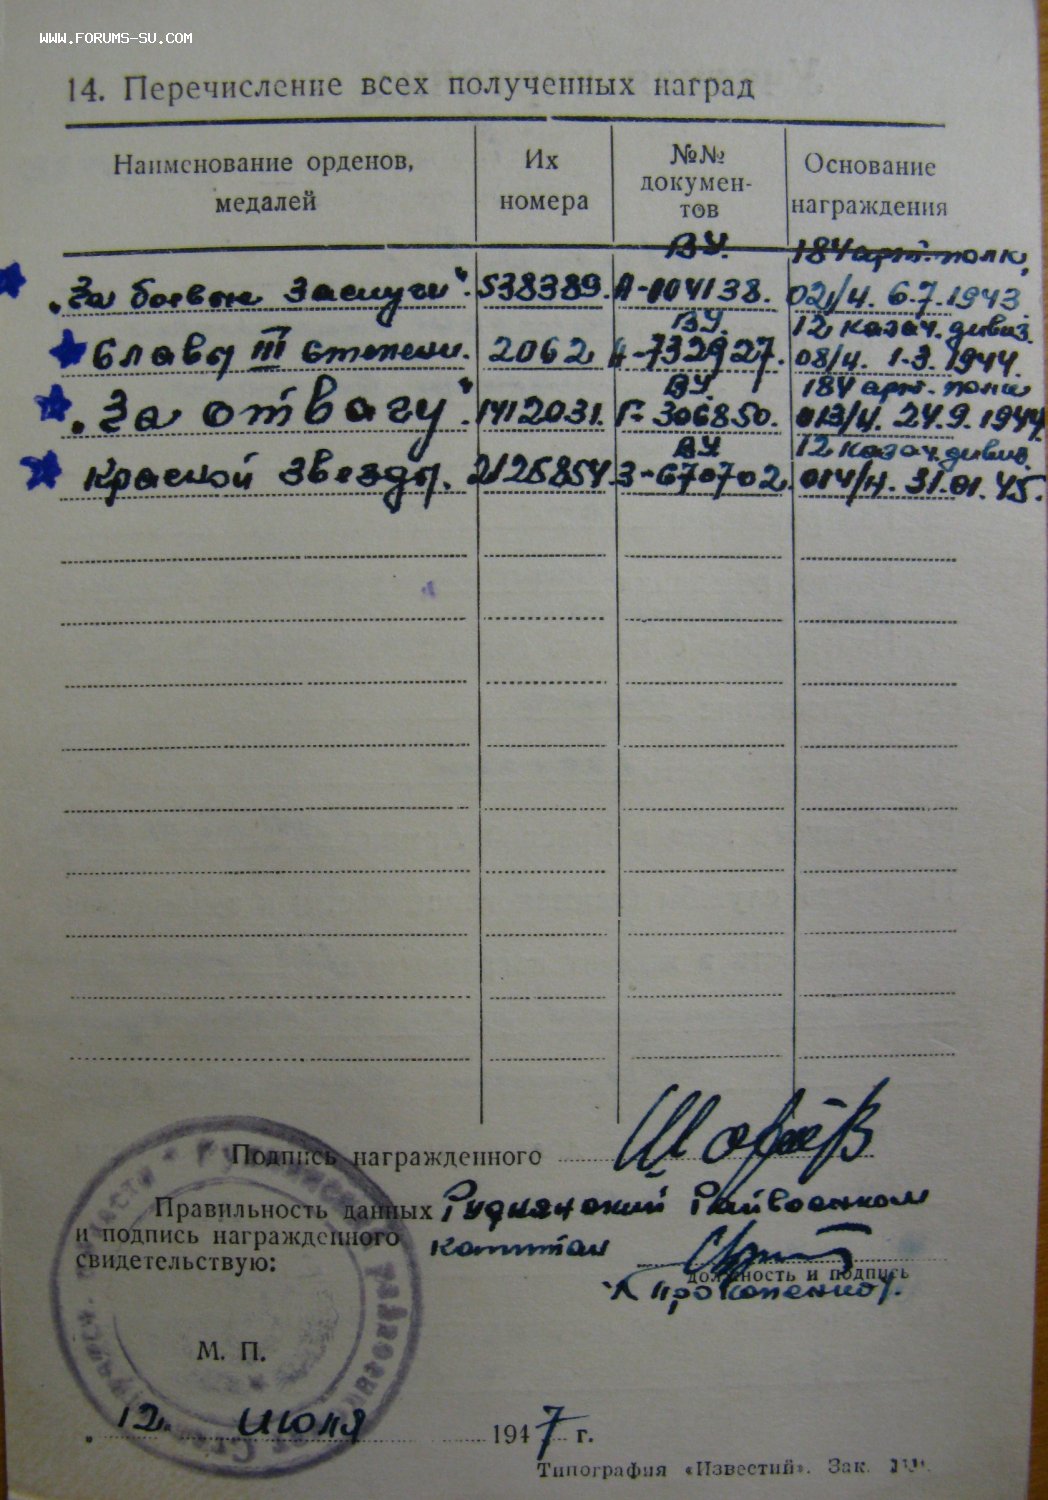 WWW.FORUMS-SU.COM
14. Перечисление всех полученных наград
Наименование орденов,
медалей
Их
номера
№№
докумен-
тов
Основание
награждения
ВУ. 184 арт. полк,
„За боевые заслуги“. 538389. А-104138. 02/н. 6.7.1943
ВУ. 12 казач. дивиз.
Славы III степени. 2062 732927. 08/н. 1.3.1944.
ВУ. 184 арт. полк
„За отвагу“. 1412031. Г-306850. 013/н. 24.9.1944
ВУ 12 казач. дивиз.
Красной Звезды. 2125854. З-670702. 014/н. 31.01.45.
Подпись награжденного
Правильность данных Руднянский Райвоенком
и подпись награжденного капитан
свидетельствую:
должность и подпись
М. П.
„12. июля 1947 г.
Типография «Известий». Зак.